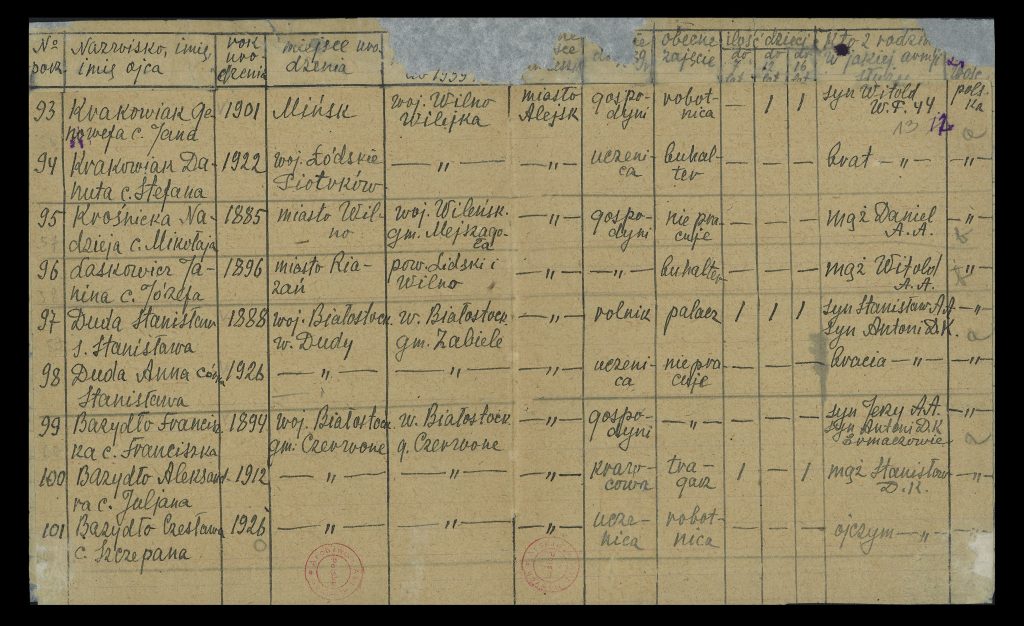 № porz. Nazwisko, imię, imię ojca rok urodzenia miejsce urodzenia obecne zajęcie ilość dzieci
do 7 lat
93 Krakowiak Genowefa c. Jana 1901 Mińsk woj. Wilno Wilejka miasto Alejsk gospodyni robotnica — 1 1 syn Witold W.P. 44
13 12
94 Krakowiak Danuta c. Stefana 1922 woj. Łódzkie Piotrków — „ — — „ — uczenica buhalter — — — brat — „ — — „ —
95 Krośnicka Nadzieja c. Mikołaja 1885 miasto Wilno woj. Wileńsk. gm. Mejszagoła — „ — gospodyni nie pracuje — — — mąż Daniel A.A. — „ —
96 Laskowicz Janina c. Józefa 1896 miasto Riazań pow. Lidski i Wilno — „ — — „ — buhalter — — — mąż Witold A.A. — „ —
97 Duda Stanisław s. Stanisława 1888 woj. Białostock. w. Dudy w. Białostock. gm. Zabiele — „ — rolnik palacz 1 1 1 syn Stanisław A.A. syn Antoni D.K. — „ —
98 Duda Anna córka Stanisława 1926 — „ — — „ — — „ — uczenica nie pracuje — — — bracia — „ — — „ —
99 Bazydło Franciszka c. Franciszka 1894 woj. Białostock. gm. Czerwone w. Białostock. g. Czerwone — „ — gospodyni — „ — — — — syn Jerzy A.A. syn Antoni D.K. — „ —
100 Bazydło Aleksandra c. Juljana 1912 — „ — — „ — — „ — krawcowa tragarz 1 — 1 mąż Stanisław D.K. — „ —
101 Bazydło Czesława c. Szczepana 1926 — „ — — „ — — „ — uczenica robotnica — — — ojczym — „ — — „ —